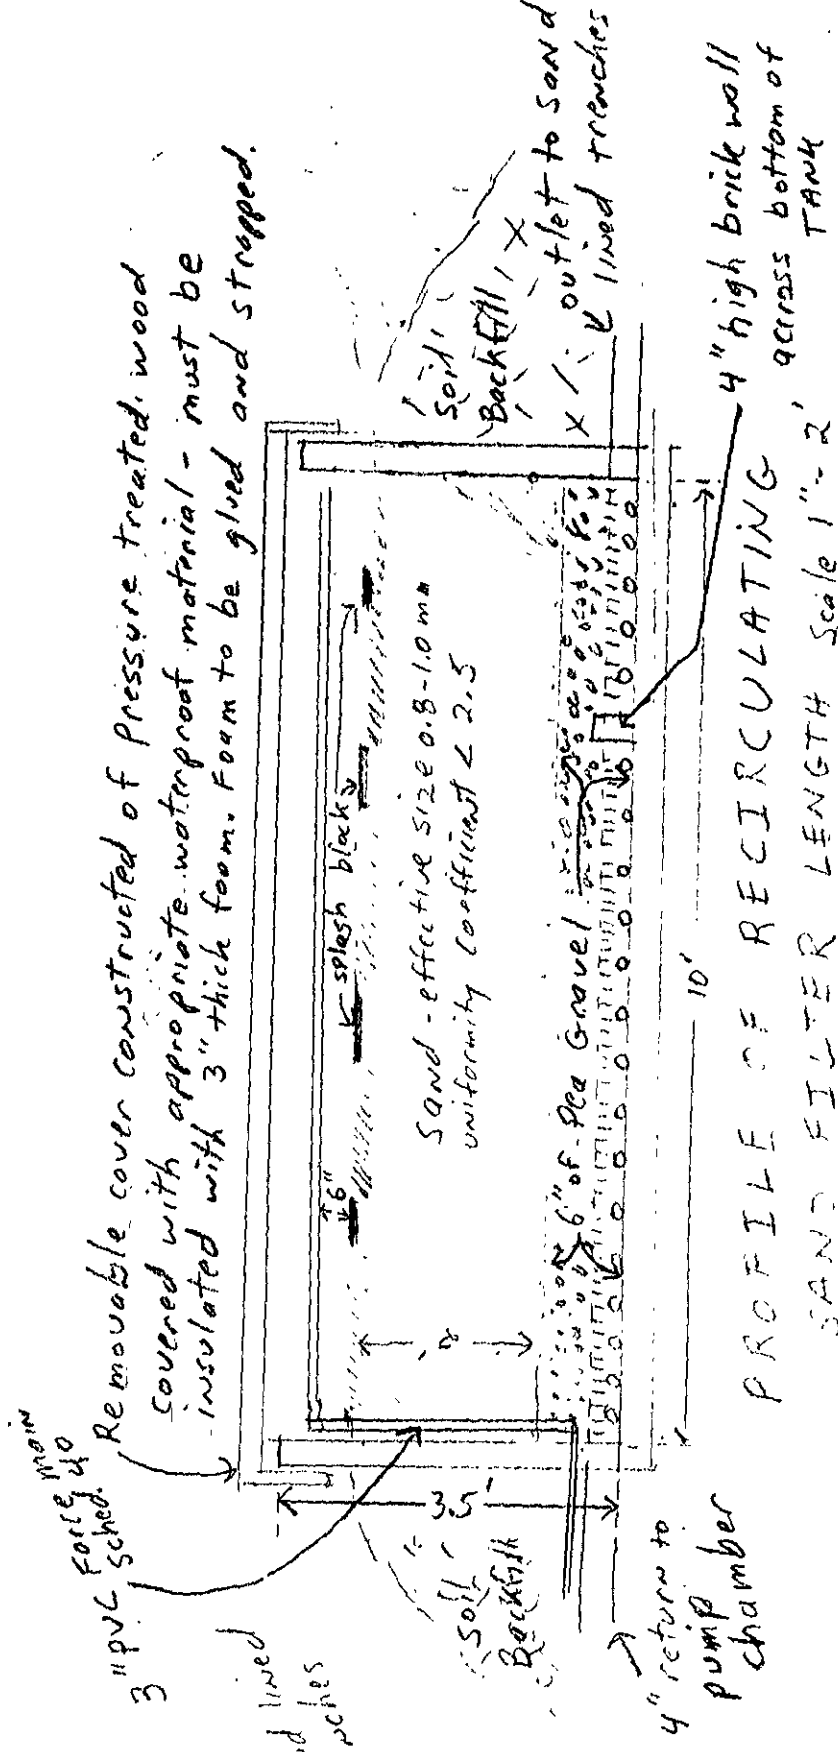 3" PVC Force main
sched. 40
Removable cover constructed of Pressure treated wood
covered with appropriate waterproof material - must be
insulated with 3" thick foam. Foam to be glued and strapped.
lined
6"
splash block
Sand - effective size 0.8-1.0 mm
uniformity coefficient < 2.5
3.5'
6" of Pea Gravel
Soil
Backfill
Soil
Backfill
outlet to sand
lined trenches
4" return to
pump
chamber
10'
4" high brick wall
across bottom of
TANK
PROFILE OF RECIRCULATING
SAND FILTER LENGTH Scale 1"-2'